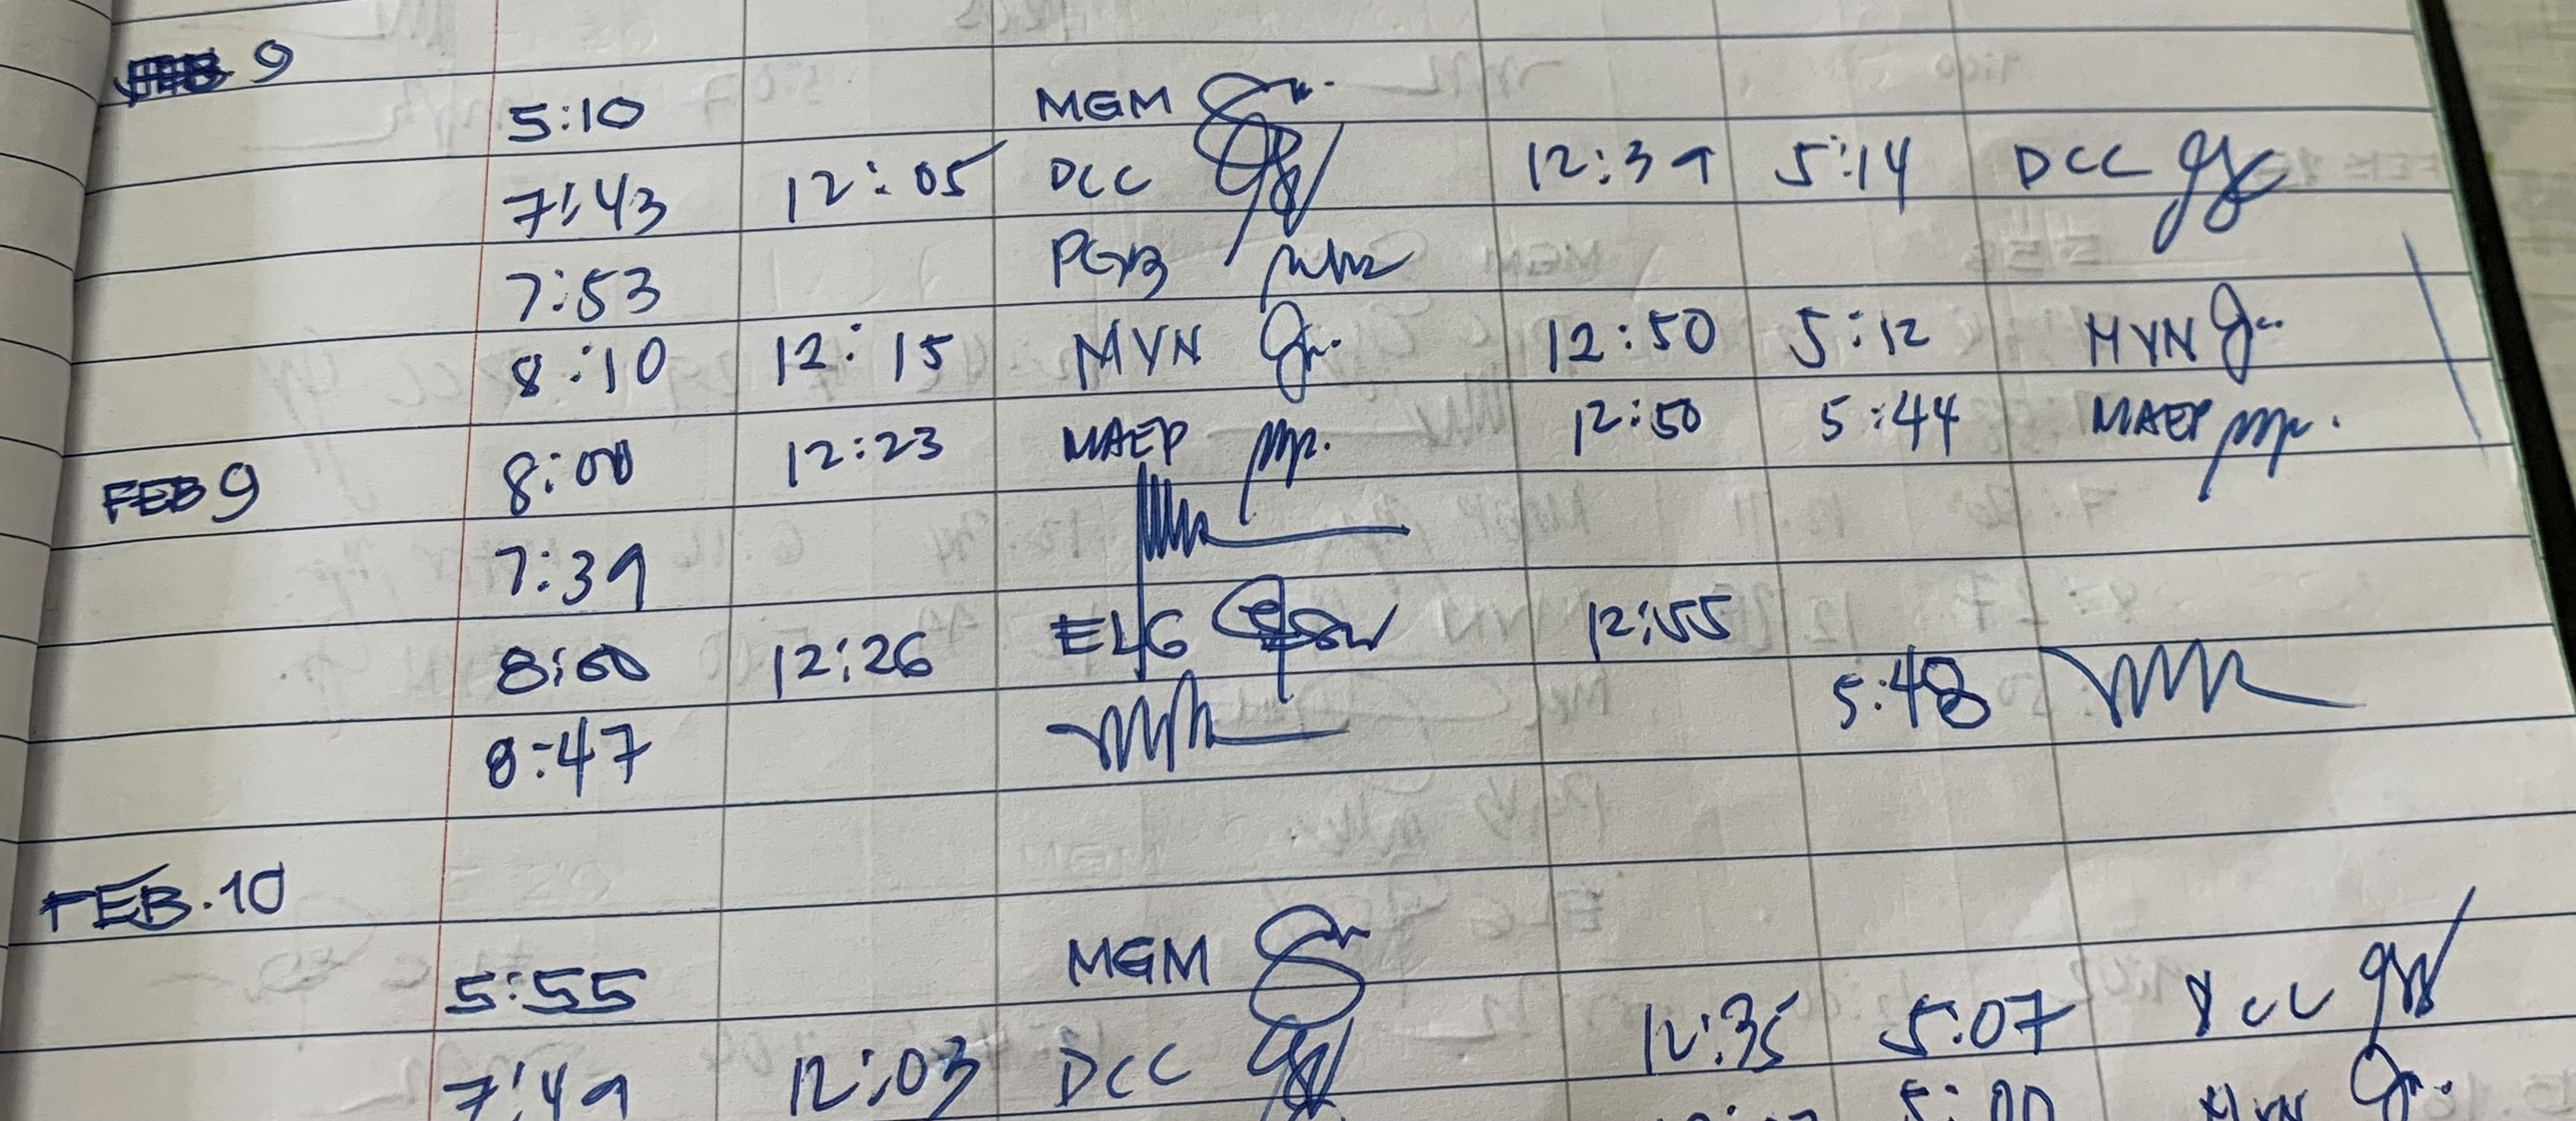 FEB 9
5:10 MGM
7:43 12:05 DCC 12:39 5:14 DCC
7:53 PGYB
8:10 12:15 MYN 12:50 5:12 MYN
8:00 12:23 MAEP 12:50 5:44 MAEP
FEB 9
7:39
8:00 12:26 ELG 12:55
8:47 5:48
FEB. 10
5:55 MGM
7:49 12:03 DCC 12:35 5:07 DCC
5:00 MYN